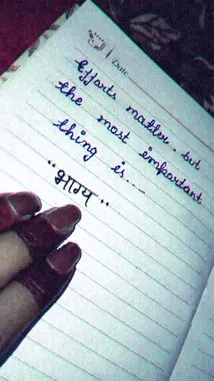 Date
Efforts matter. but
the most important
thing is....
"भाग्य"